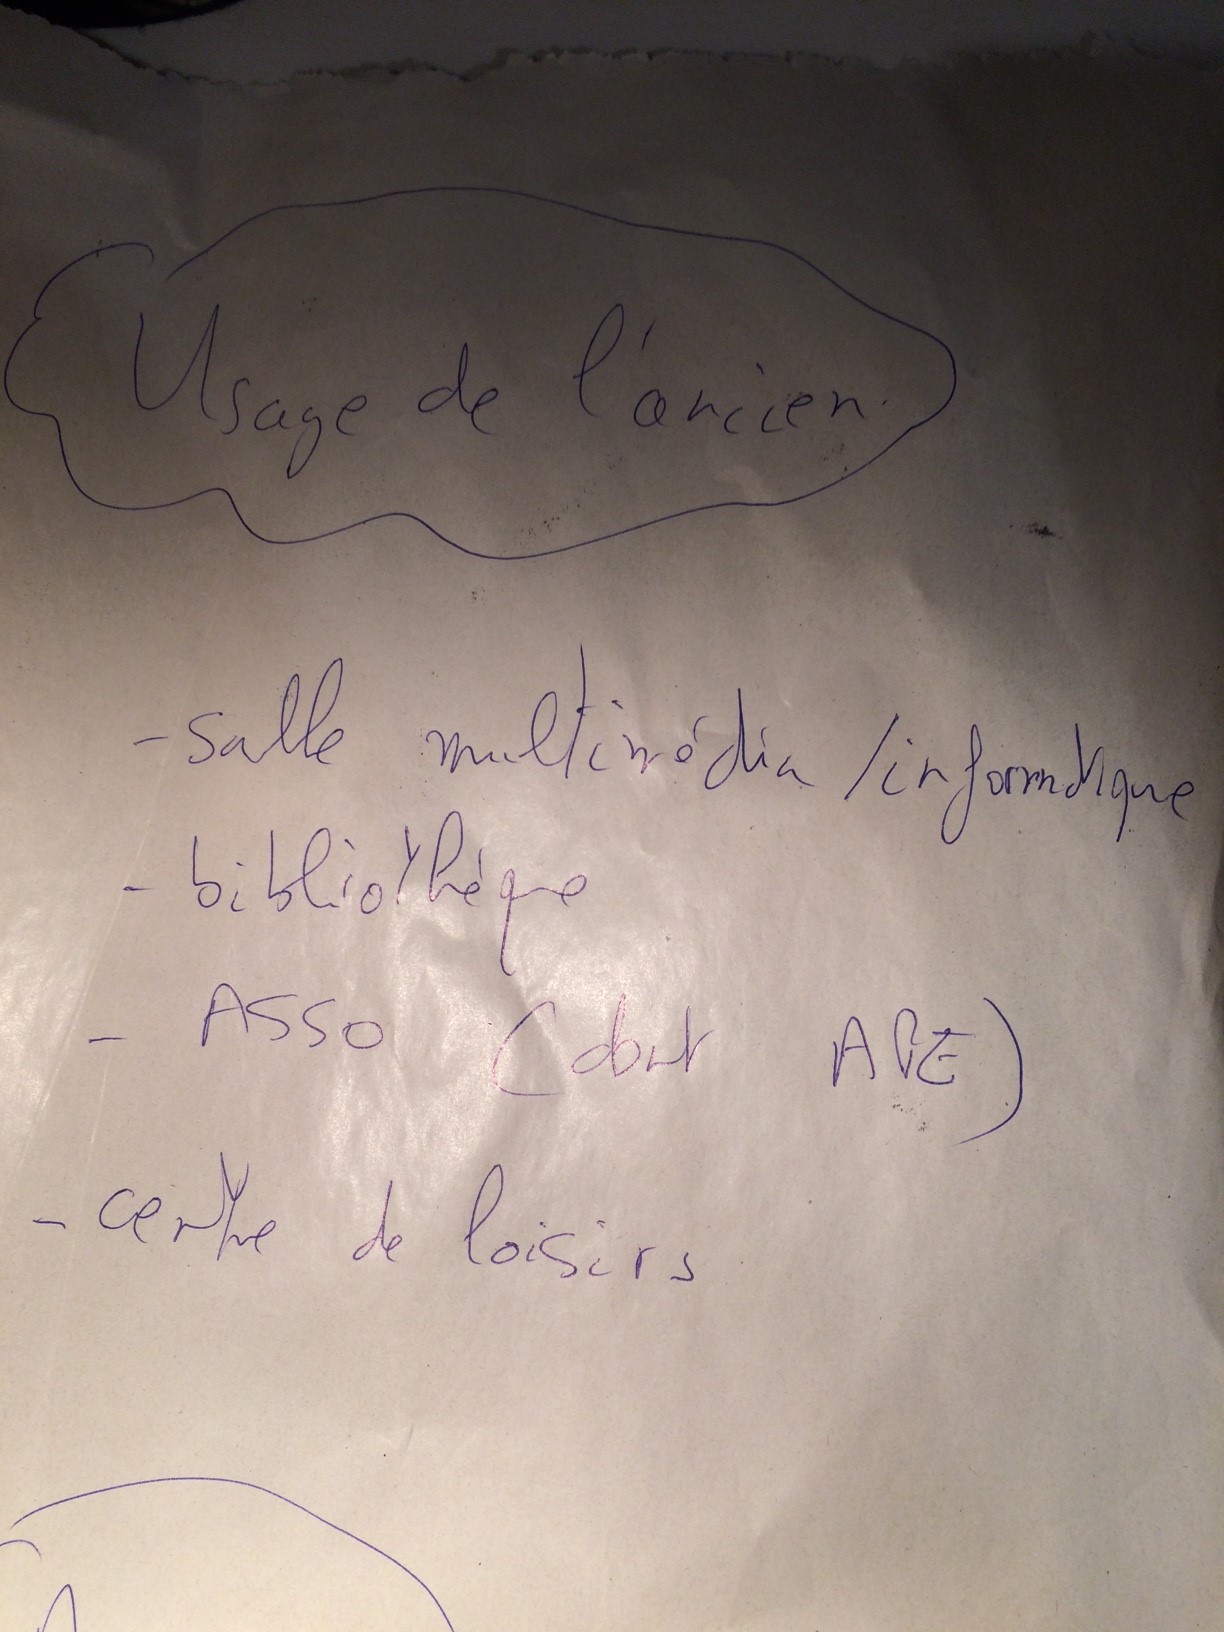 Usage de l'ancien
- salle multimédia / informatique
- bibliothèque
- ASSO (dont APE)
- centre de loisirs